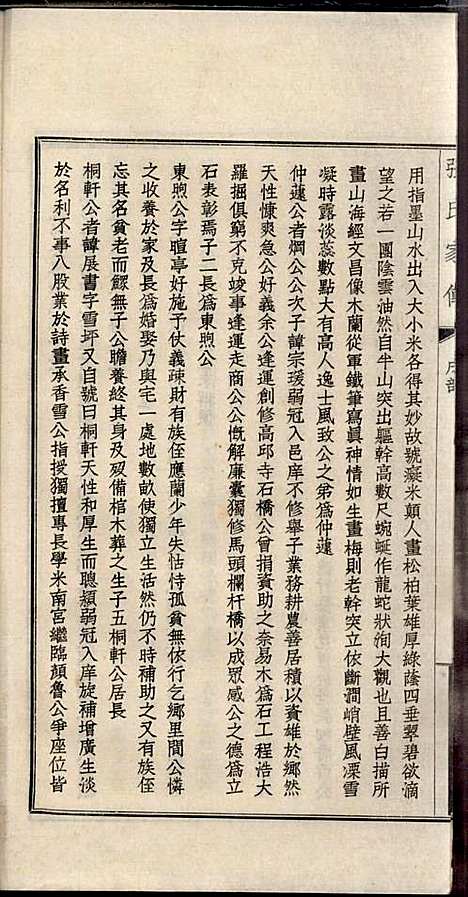 張氏家傳
用指墨山水出入大小米各得其妙故號癡米顛人畫松柏葉雄厚綠蔭四垂翠碧欲滴
望之若一團陰雲油然自半山突出軀幹高數尺蜿蜒作龍蛇狀洵大觀也且善白描所
畫山海經文昌像木蘭從軍鐵筆寫眞神情如生畫梅則老幹突立依斷澗峭壁風凜雪
凝時露淡蕊數點大有高人逸士風致公之弟爲仲蘧
仲蘧公者烱公公次子諱宗瑗弱冠入邑庠不修舉子業務耕農善居積以資雄於鄉然
天性慷爽急公好義余公逢運創修高邱寺石橋公曾捐資助之奈易木爲石工程浩大
羅掘俱窮不克竣事逢運走商公公慨解廉囊獨修馬頭欄杆橋以成眾感公之德爲立
石表彰焉子二長爲東煦公
東煦公字暄亭好施予仗義疎財有族侄應蘭少年失怙恃孤貧無依行乞鄉里間公憐
之收養於家及長爲婚娶乃與宅一處地數畝使獨立生活然仍不時補助之又有族侄
忘其名貧老而鰥無子公贍養終其身及歿備棺木葬之生子五桐軒公居長
桐軒公者諱展書字雪坪又自號曰桐軒天性和厚生而聰潁弱冠入庠旋補增廣生淡
於名利不事八股業於詩畫承香雪公指授獨擅專長學米南宮繼臨顏魯公爭座位皆